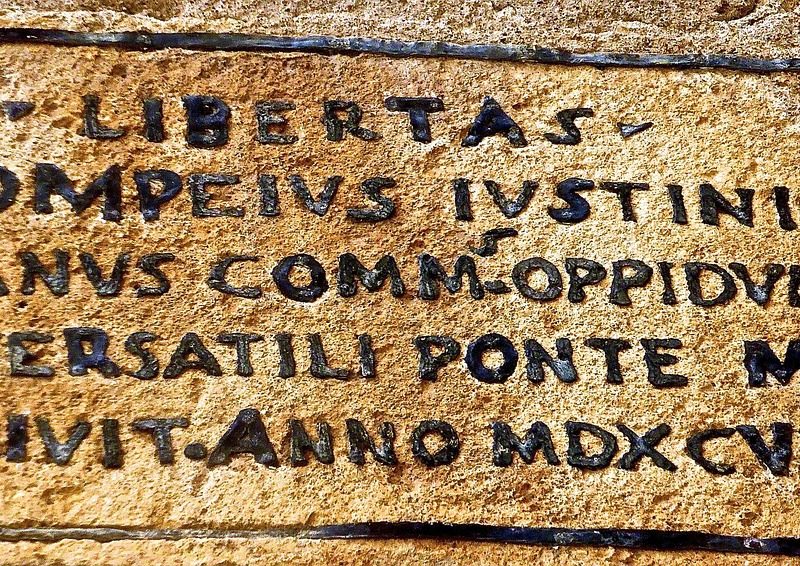 - LIBERTAS -
OMPEIVS IVSTINI
ANVS COMM-S OPPIDVM
ERSATILI PONTE M
IVIT. ANNO MDXCV